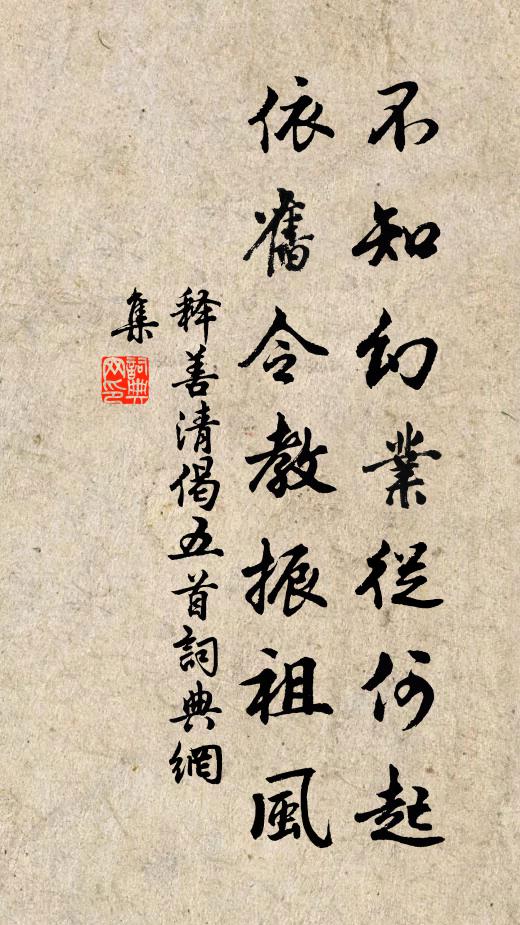 不知幻業從何起
依舊令教振祖風
释善清偈五首詞典網
集
詞典網印